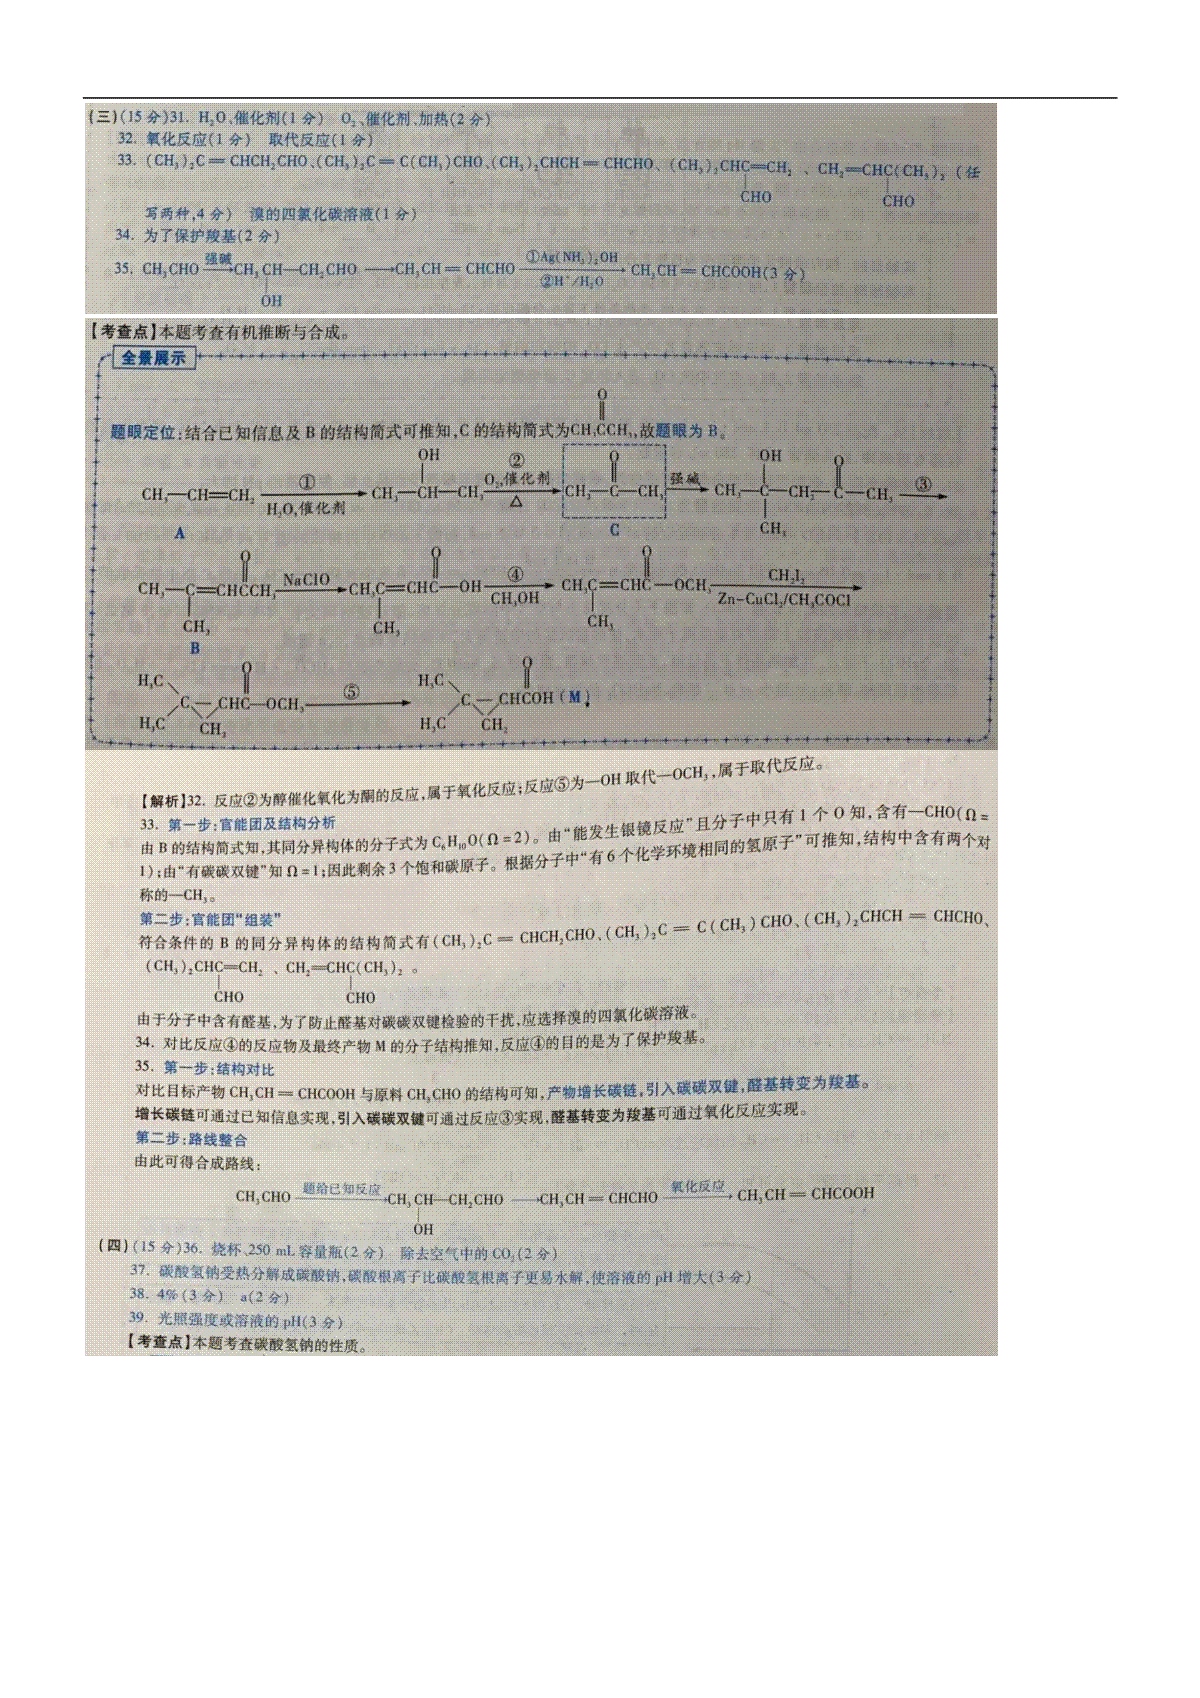 (三)(15分)31. H₂O、催化剂(1分) O₂、催化剂、加热(2分)
32. 氧化反应(1分) 取代反应(1分)
33. (CH₃)₂C＝CHCH₂CHO、(CH₃)₂C＝C(CH₃)CHO、(CH₃)₂CHCH＝CHCHO、(CH₃)₂CHC＝CH₂ 、CH₂＝CHC(CH₃)₂ (任
CHO CHO
写两种,4分) 溴的四氯化碳溶液(1分)
34. 为了保护羧基(2分)
35. CH₃CHO 强碱→ CH₃CH—CH₂CHO ⟶ CH₃CH＝CHCHO ①Ag(NH₃)₂OH ②H⁺/H₂O → CH₃CH＝CHCOOH(3分)
OH
【考查点】本题考查有机推断与合成。
全景展示
O
题眼定位:结合已知信息及B的结构简式可推知,C的结构简式为CH₃CCH₃,故题眼为B。
OH ② O OH O
CH₃—CH＝CH₂ ① H₂O,催化剂 → CH₃—CH—CH₃ O₂,催化剂 △ → CH₃—C—CH₃ 强碱→ CH₃—C—CH₂—C—CH₃ ③→
A C CH₃
O O O
CH₃—C＝CHCCH₃ NaClO→ CH₃C＝CHC—OH ④ CH₃OH → CH₃C＝CHC—OCH₃ CH₂I₂ Zn-CuCl₂/CH₃COCl →
CH₃ CH₃ CH₃
B
H₃C O H₃C O
C—CHC—OCH₃ ⑤→ C—CHCOH(M)
H₃C CH₂ H₃C CH₂
【解析】32. 反应②为醇催化氧化为酮的反应,属于氧化反应;反应⑤为—OH取代—OCH₃,属于取代反应。
33. 第一步:官能团及结构分析
由B的结构简式知,其同分异构体的分子式为C₆H₁₀O(Ω=2)。由“能发生银镜反应”且分子中只有1个O知,含有—CHO(Ω=
1);由“有碳碳双键”知Ω=1;因此剩余3个饱和碳原子。根据分子中“有6个化学环境相同的氢原子”可推知,结构中含有两个对
称的—CH₃。
第二步:官能团“组装”
符合条件的B的同分异构体的结构简式有(CH₃)₂C＝CHCH₂CHO、(CH₃)₂C＝C(CH₃)CHO、(CH₃)₂CHCH＝CHCHO、
(CH₃)₂CHC＝CH₂ 、CH₂＝CHC(CH₃)₂ 。
CHO CHO
由于分子中含有醛基,为了防止醛基对碳碳双键检验的干扰,应选择溴的四氯化碳溶液。
34. 对比反应④的反应物及最终产物M的分子结构推知,反应④的目的是为了保护羧基。
35. 第一步:结构对比
对比目标产物CH₃CH＝CHCOOH与原料CH₃CHO的结构可知,产物增长碳链,引入碳碳双键,醛基转变为羧基。
增长碳链可通过已知信息实现,引入碳碳双键可通过反应③实现,醛基转变为羧基可通过氧化反应实现。
第二步:路线整合
由此可得合成路线:
CH₃CHO 题给已知反应→ CH₃CH—CH₂CHO ⟶ CH₃CH＝CHCHO 氧化反应→ CH₃CH＝CHCOOH
OH
(四)(15分)36. 烧杯、250 mL容量瓶(2分) 除去空气中的CO₂(2分)
37. 碳酸氢钠受热分解成碳酸钠,碳酸根离子比碳酸氢根离子更易水解,使溶液的pH增大(3分)
38. 4%(3分) a(2分)
39. 光照强度或溶液的pH(3分)
【考查点】本题考查碳酸氢钠的性质。